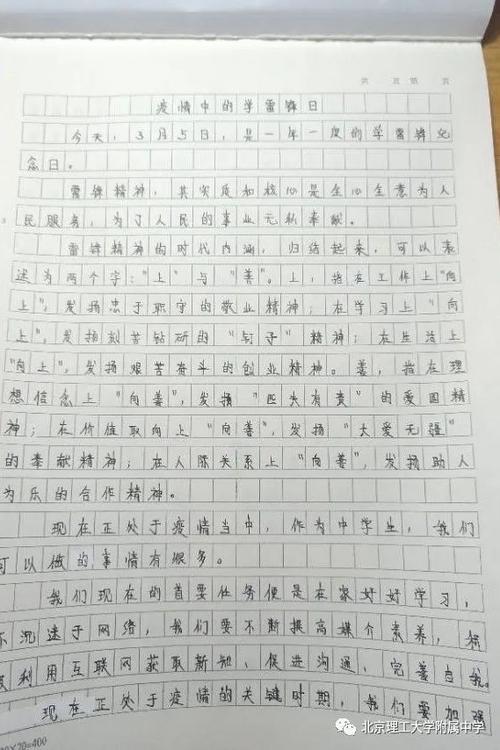 第 页 第 页
疫情中的学雷锋日
今天,3月5日,是一年一度的学雷锋纪
念日。
雷锋精神,其实质和核心是全心全意为人
民服务,为了人民的事业无私奉献。
雷锋精神的时代内涵,归结起来,可以表
述为两个字:"上"与"善"。上,指在工作上"向
上",发扬忠于职守的敬业精神;在学习上"向
上",发扬刻苦钻研的"钉子"精神;在生活上
"向上",发扬艰苦奋斗的创业精神。善,指在理
想信念上"向善",发扬"匹夫有责"的爱国精
神;在价值取向上"向善",发扬"大爱无疆"
的奉献精神;在人际关系上"向善",发扬助人
为乐的合作精神。
现在正处于疫情当中,作为中学生,我们
可以做的事情有很多。
我们现在的首要任务便是在家好好学习,
不沉迷于网络,我们要不断提高媒介素养,积
极利用互联网获取新知、促进沟通、完善自我。
现在正处于疫情的关键时期,我们要加强
20×20=400
北京理工大学附属中学